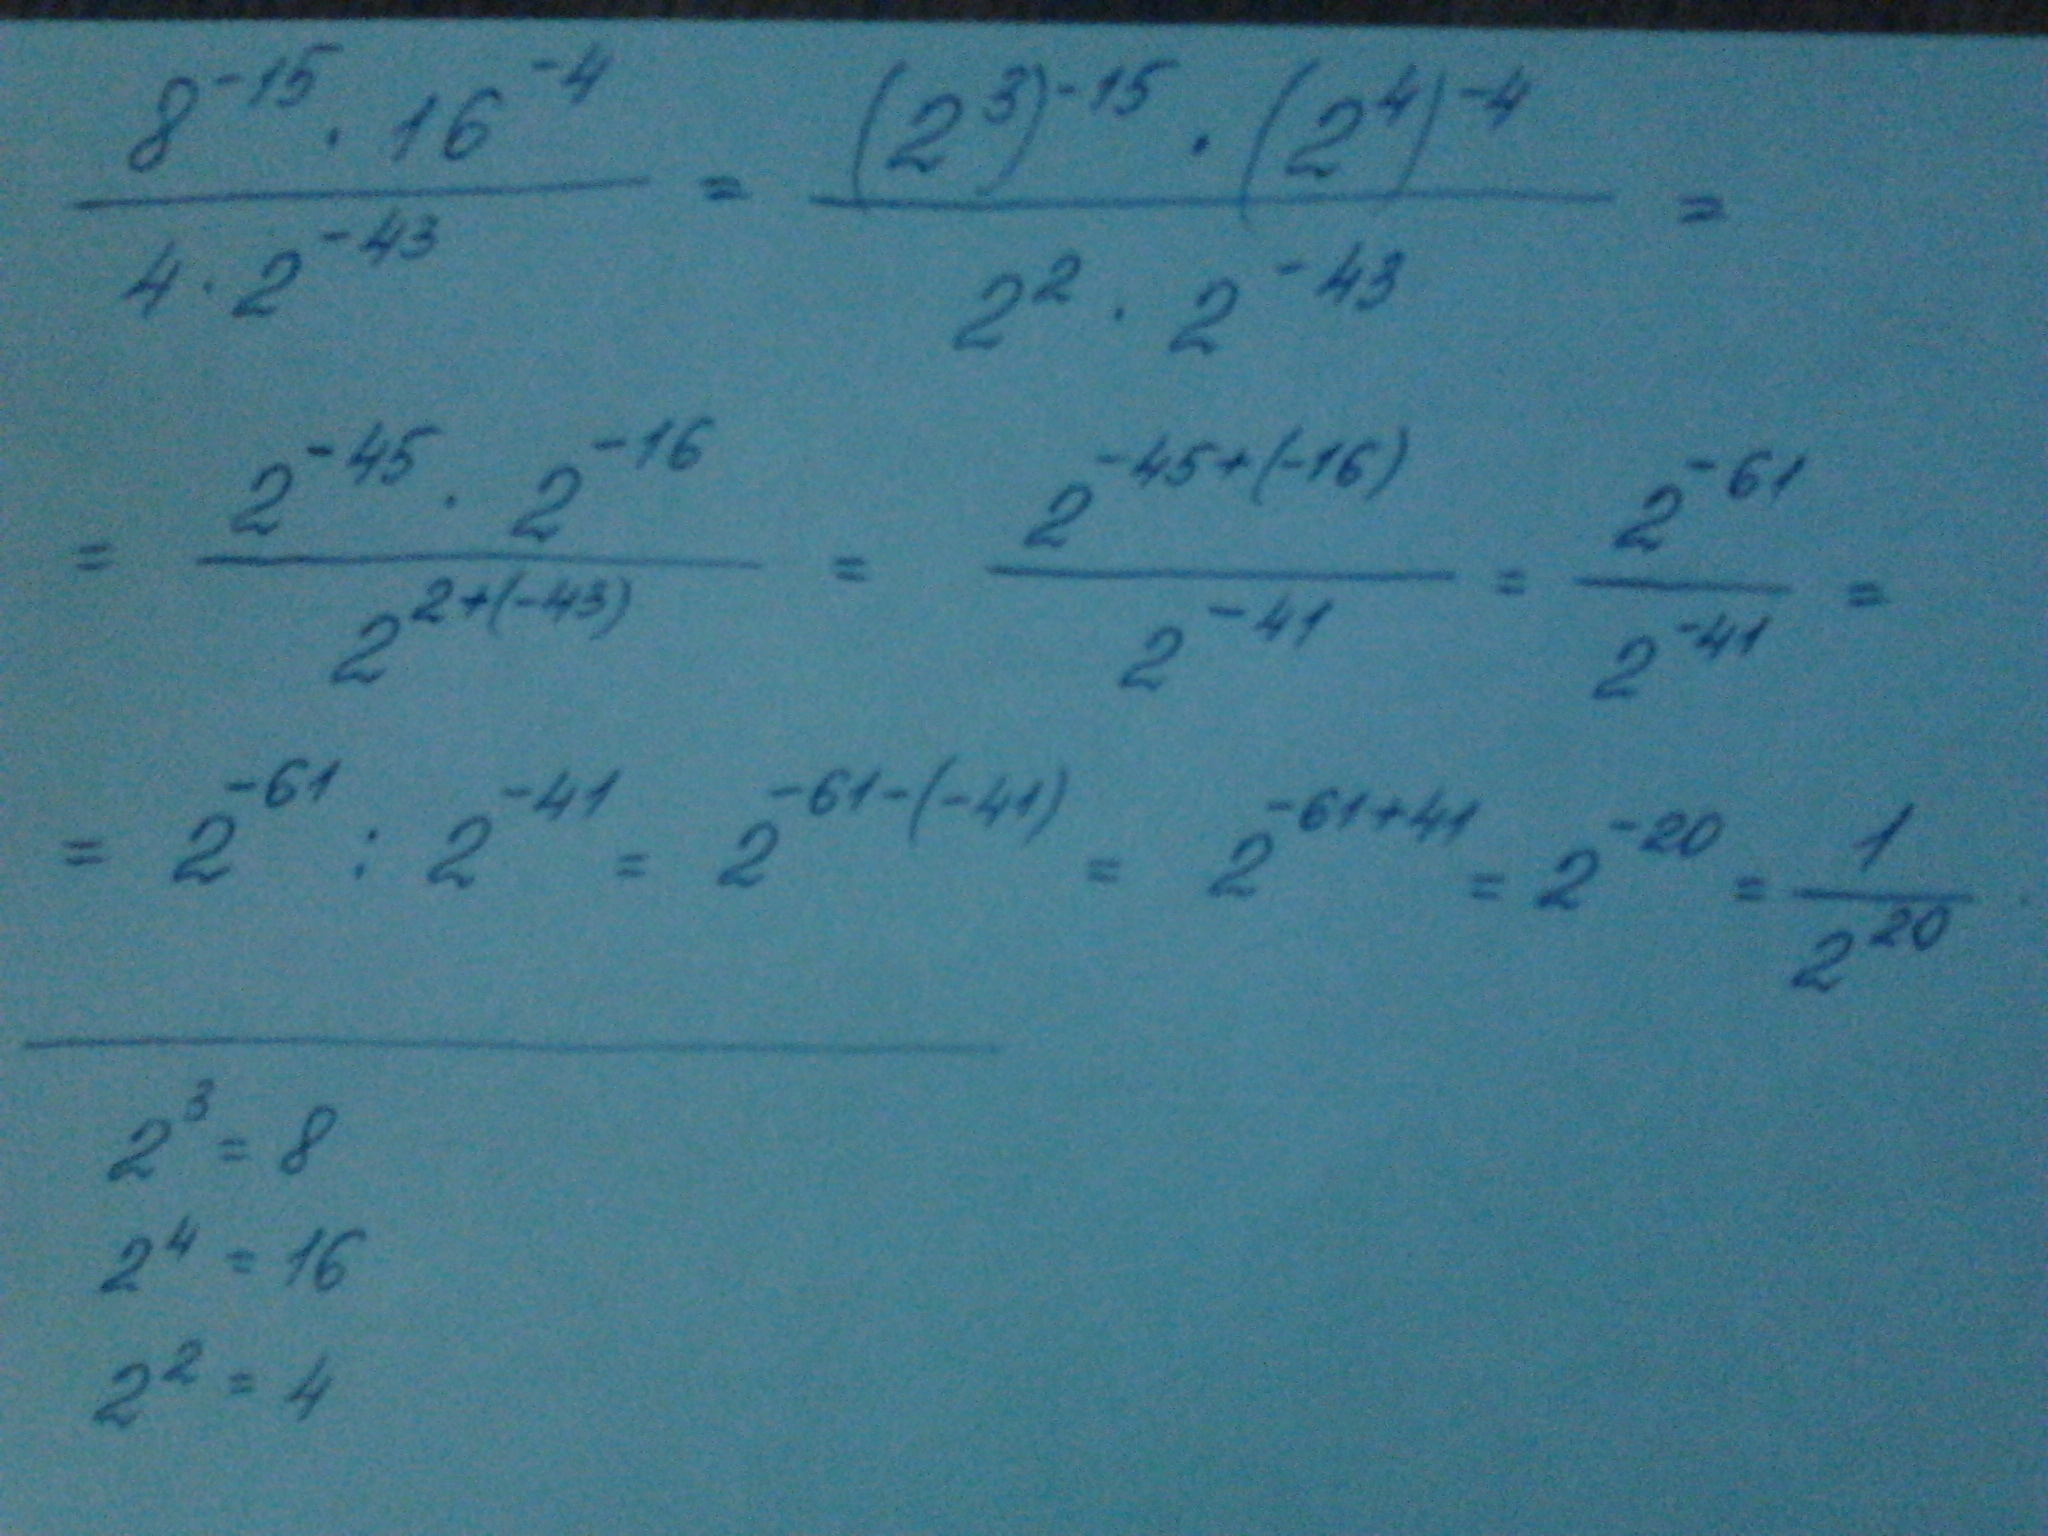 8^{-15} · 16^{-4} / 4 · 2^{-43} = (2^3)^{-15} · (2^4)^{-4} / 2^2 · 2^{-43} =
= 2^{-45} · 2^{-16} / 2^{2+(-43)} = 2^{-45+(-16)} / 2^{-41} = 2^{-61} / 2^{-41} =
= 2^{-61} : 2^{-41} = 2^{-61-(-41)} = 2^{-61+41} = 2^{-20} = 1 / 2^{20}.
2^3 = 8
2^4 = 16
2^2 = 4